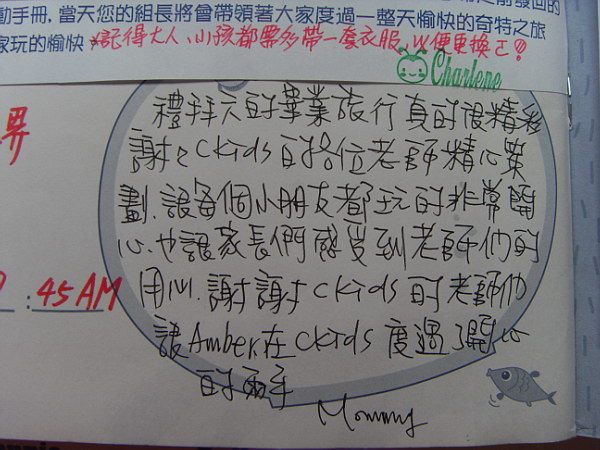 動手冊，當天您的組長將會帶領著大家度過一整天愉快的奇特之旅
家玩的愉快 *記得大人、小孩都要多帶一套衣服，以便更換之!
Charlene
禮拜天的畢業旅行真的很精彩
謝謝Ckids的各位老師精心策
劃，讓每個小朋友都玩的非常開
心，也讓家長們感覺到老師們的
用心，謝謝Ckids的老師們
:45 AM
讓Amber在Ckids度過了開心
的兩年
Mommy